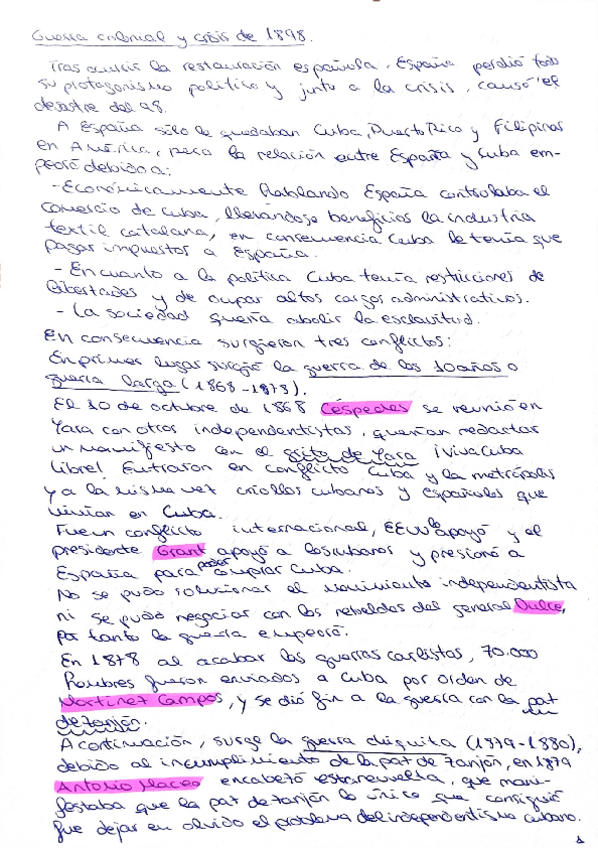 Guerra colonial y crisis de 1898.
Tras surgir la restauración española, España perdió todo
su protagonismo político y junto a la crisis, causó el
desastre del 98.
A España sólo le quedaban Cuba, Puerto Rico y Filipinas
en América, pero la relación entre España y Cuba em-
peoró debido a:
- Económicamente hablando España controlaba el
comercio de Cuba, llevándose beneficios la industria
textil catalana, en consecuencia Cuba le tenía que
pagar impuestos a España.
- En cuanto a la política Cuba tenía restricciones de
libertades y de ocupar altos cargos administrativos.
- La sociedad quería abolir la esclavitud.
En consecuencia surgieron tres conflictos:
En primer lugar surgió la guerra de los 10 años o
guerra larga (1868-1878).
El 10 de octubre de 1868 Céspedes se reunió en
Yara con otros independentistas, querían redactar
un manifiesto con el grito de Yara ¡Viva Cuba
libre! Entraron en conflicto Cuba y la metrópolis
y a la misma vez criollos cubanos y españoles que
vivían en Cuba.
Fue un conflicto internacional, EEUU lo apoyó y el
presidente Grant apoyó a los cubanos y presionó a
España para poder comprar Cuba.
No se pudo solucionar el movimiento independentista
ni se pudo negociar con los rebeldes del general Dulce,
por tanto la guerra empeoró.
En 1878 al acabar las guerras carlistas, 70.000
hombres fueron enviados a Cuba por orden de
Martínez Campos, y se dió fin a la guerra con la paz
de zanjón.
A continuación, surge la guerra chiquita (1879-1880),
debido al incumplimiento de la paz de zanjón, en 1879
Antonio Maceo encabezó esta revuelta, que mani-
festaba que la paz de zanjón lo único que consiguió
fue dejar en olvido el problema del independentismo cubano.
1